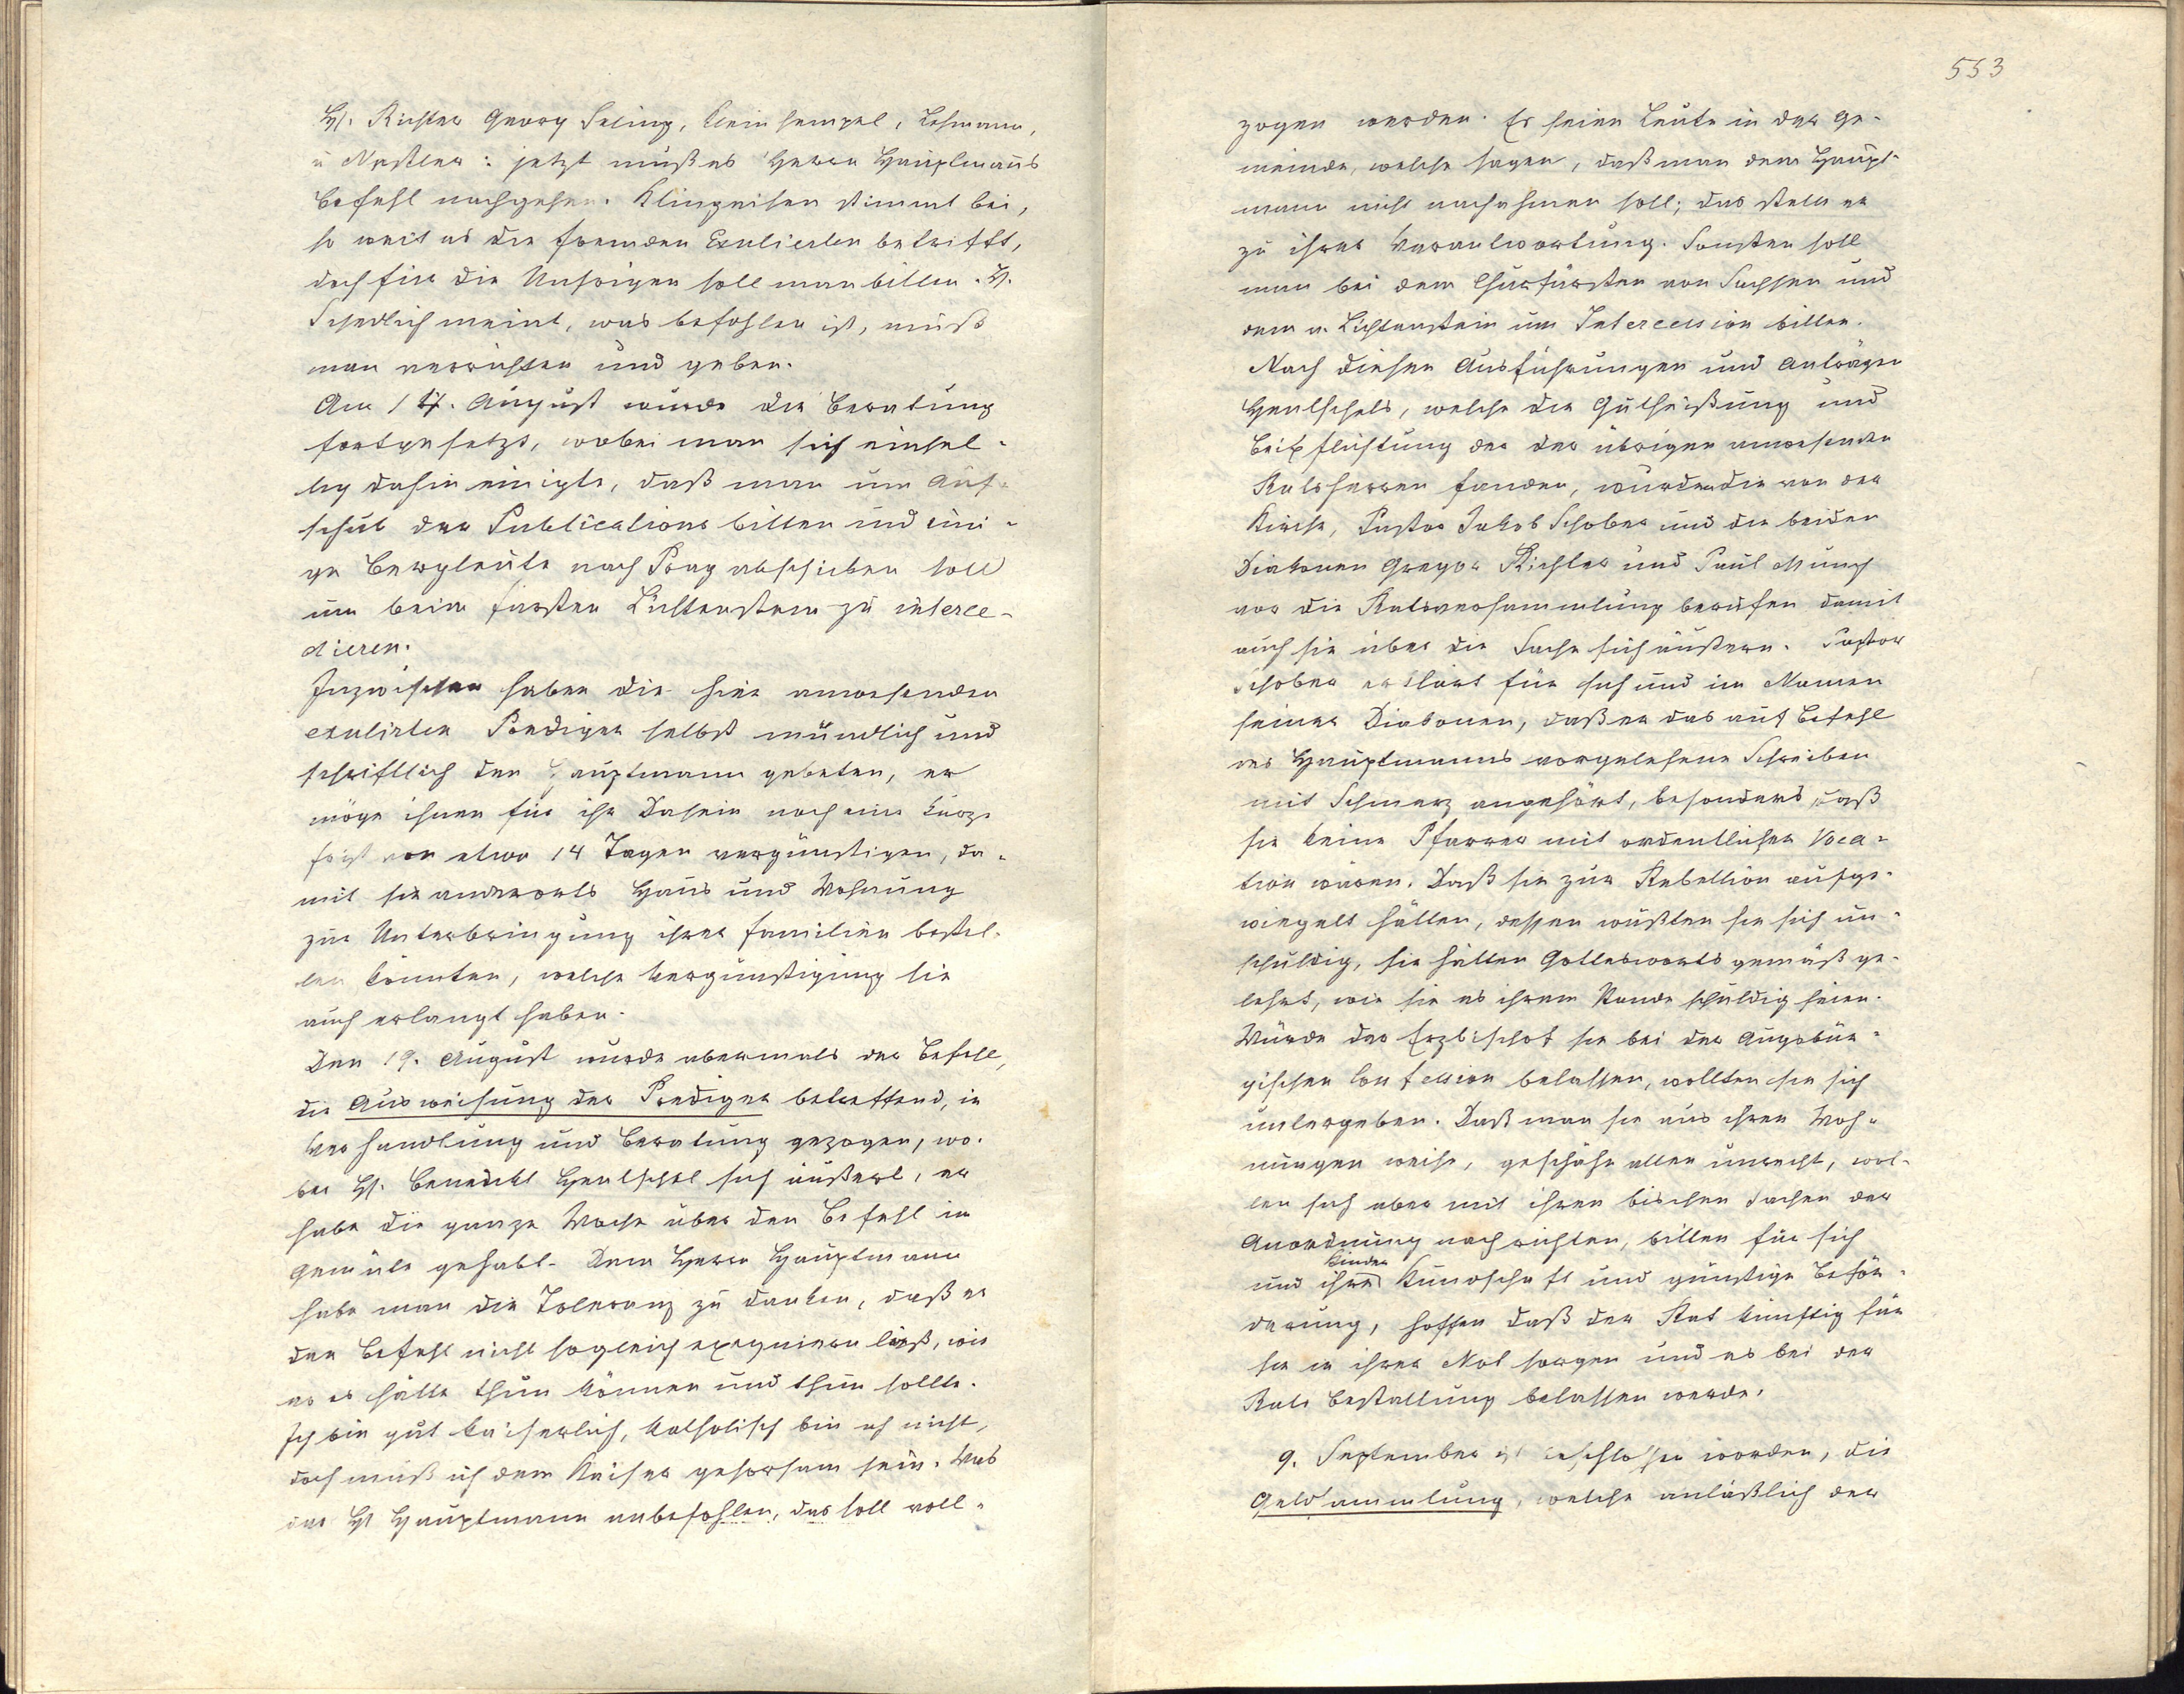 H. Richter Georg Seling, Kleinhempel, Lehmann,
u Nestler: jetzt muß es Herrn Hauptmanns
Befehl nachgehen. Klingeisen stimmt bei,
so weit es die fremden Exulierten betrifft,
doch für die Unsrigen soll man bitten. H.
Schedlich meint, was befohlen ist, muß
man verrichten und geben.
Am 17. August wurde die Beratung
fortgesetzt, wobei man sich einhel-
lig dahin einigte, daß man um Auf-
schub der Publications bitten und eini-
ge Bergleute nach Prag abschicken soll
um beim Fürsten Lichtenstein zu interce-
dieren.
Inzwischen haben die hier anwesenden
exulierten Prediger selbst mündlich und
schriftlich den Hauptmann gebeten, er
möge ihnen für ihr Dasein noch eine kurze
Frist von etwa 14 Tagen vergünstigen, da-
mit sie anderorts Haus und Wohnung
zur Unterbringung ihrer Familien bestel-
len könnten, welche Vergünstigung sie
auch erlangt haben.
Den 19. August wurde abermals der Befehl,
die Ausweisung der Prediger betreffend, in
Verhandlung und Beratung gezogen, wo-
bei H. Benedikt Hentschel sich äußert, er
habe die ganze Woche über den Befehl im
Gemüte gehabt. Dem Herrn Hauptmann
habe man die Toleranz zu danken, daß er
den Befehl nicht sogleich exequieren ließ, wie
er es hätte thun können und thun sollte.
Ich bin gut kaiserlich, katholisch bin ich nicht,
doch muß ich dem Kaiser gehorsam sein. Was
der H Hauptmann anbefohlen, das soll voll-
553
zogen werden. Es seien Leute in der Ge-
meinde, welche sagen, daß man dem Haupt-
mann nicht nachahmen soll; das stelle er
zu ihrer Verantwortung. Sonsten soll
man bei dem Churfürsten von Sachsen und
dem v. Lichtenstein um Intercession bitten.
Nach diesen Ausführungen und Anträgen
Hentschels, welche die Gutheißung und
Beipflichtung der der übrigen anwesenden
Ratsherren fanden, wurden die von der
Kirche, Pastor Jakob Schober und die beiden
Diakonen Gregor Richter und Paul Münch
vor die Ratsversammlung berufen damit
auch sie über die Sache sich äußern. Pastor
Schober erklärt für sich und im Namen
seiner Diakonen, daß er das auf Befehl
des Hauptmanns vorgelesene Schreiben
mit Schmerz angehört, besonders daß
sie keine Pfarrer mit ordentlicher Voca-
tion wären. Daß sie zur Rebellion aufge-
wiegelt hätten, dessen wüßten sie sich un-
schuldig, sie hätten Gotteswort gemäß ge-
lehrt, wie sie es ihrem Stande schuldig seien.
Würde der Erzbischof sie bei der Augsbur-
gischen Confession belassen, wollten sie sich
untergeben. Daß man sie aus ihren Woh-
nungen weise, geschähe allen unrecht, wol-
len sich aber mit ihren bischen Sachen der
Anordnung nach richten, bitten für sich
und ihre Kinder Kundschaft und günstige Beför-
derung, hoffen daß der Rat künftig für
sie in ihrer Not sorgen und es bei der
Rats Bestallung belassen werde.
9. September ist beschlossen worden, die
Geldsammlung, welche anläßlich der